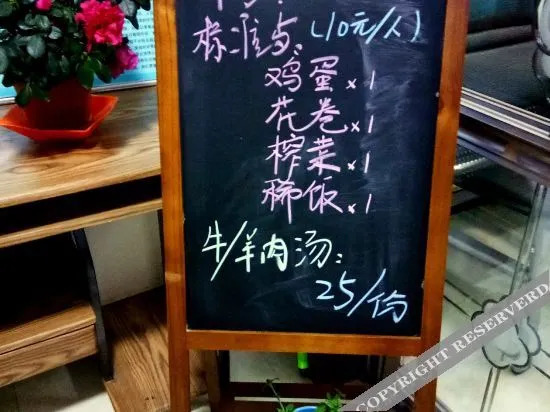 标准与: (10元/人)
鸡蛋×1
花卷×1
榨菜×1
稀饭×1
牛/羊肉汤:
25/份
COPYRIGHT RESERVED